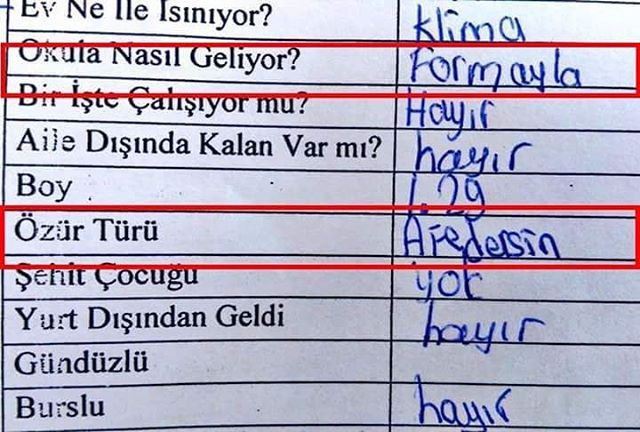 Ev Ne İle Isınıyor? klima
Okula Nasıl Geliyor? Formayla
Bir İşte Çalışıyor mu? Hayır
Aile Dışında Kalan Var mı? hayır
Boy 1.29
Özür Türü Afedersin
Şehit Çocuğu yok
Yurt Dışından Geldi hayır
Gündüzlü
Burslu hayır